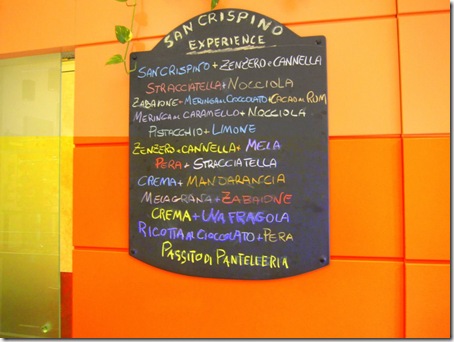 SAN CRISPINO
EXPERIENCE
SAN CRISPINO + ZENZERO E CANNELLA
STRACCIATELLA + NOCCIOLA
ZABAIONE + MERINGA AL CIOCCOLATO + CACAO AL RUM
MERINGA AL CARAMELLO + NOCCIOLA
PISTACCHIO + LIMONE
ZENZERO E CANNELLA + MELA
PERA + STRACCIATELLA
CREMA + MANDARANCIA
MELAGRANA + ZABAIONE
CREMA + UVA FRAGOLA
RICOTTA AL CIOCCOLATO + PERA
PASSITO DI PANTELLERIA